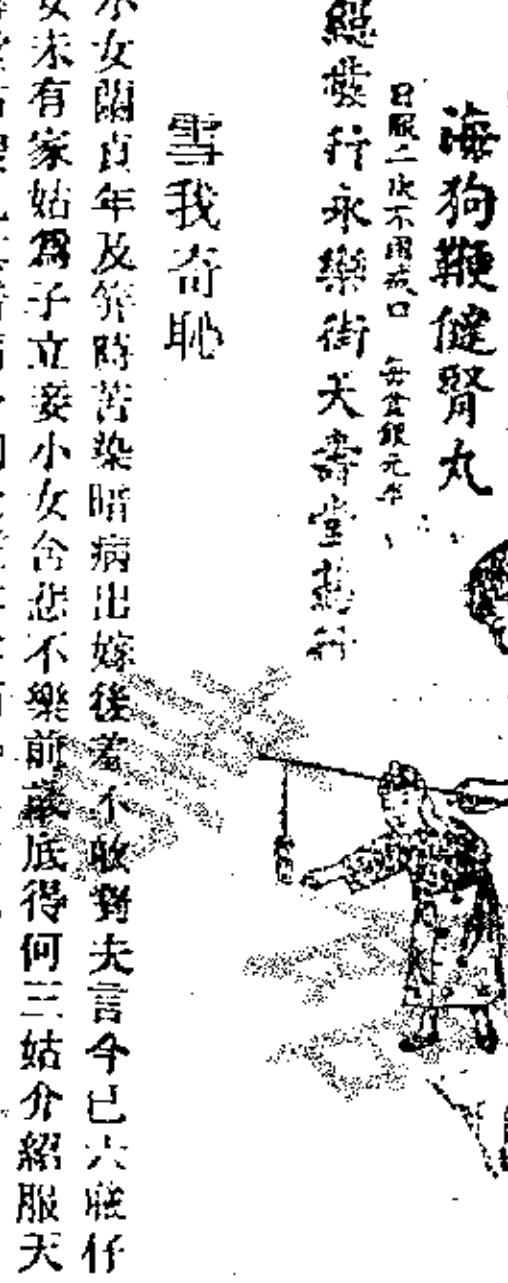 海狗鞭健腎丸
日服二次不用戒口　每盒銀元半
總發行永樂街天壽堂藥行
雪我奇恥
小女蘭貞年及笄時苦染暗病出嫁後羞不敢對夫言今已六載仔
女未有家姑爲子立妾小女含悲不樂前歲底得何三姑介紹服天